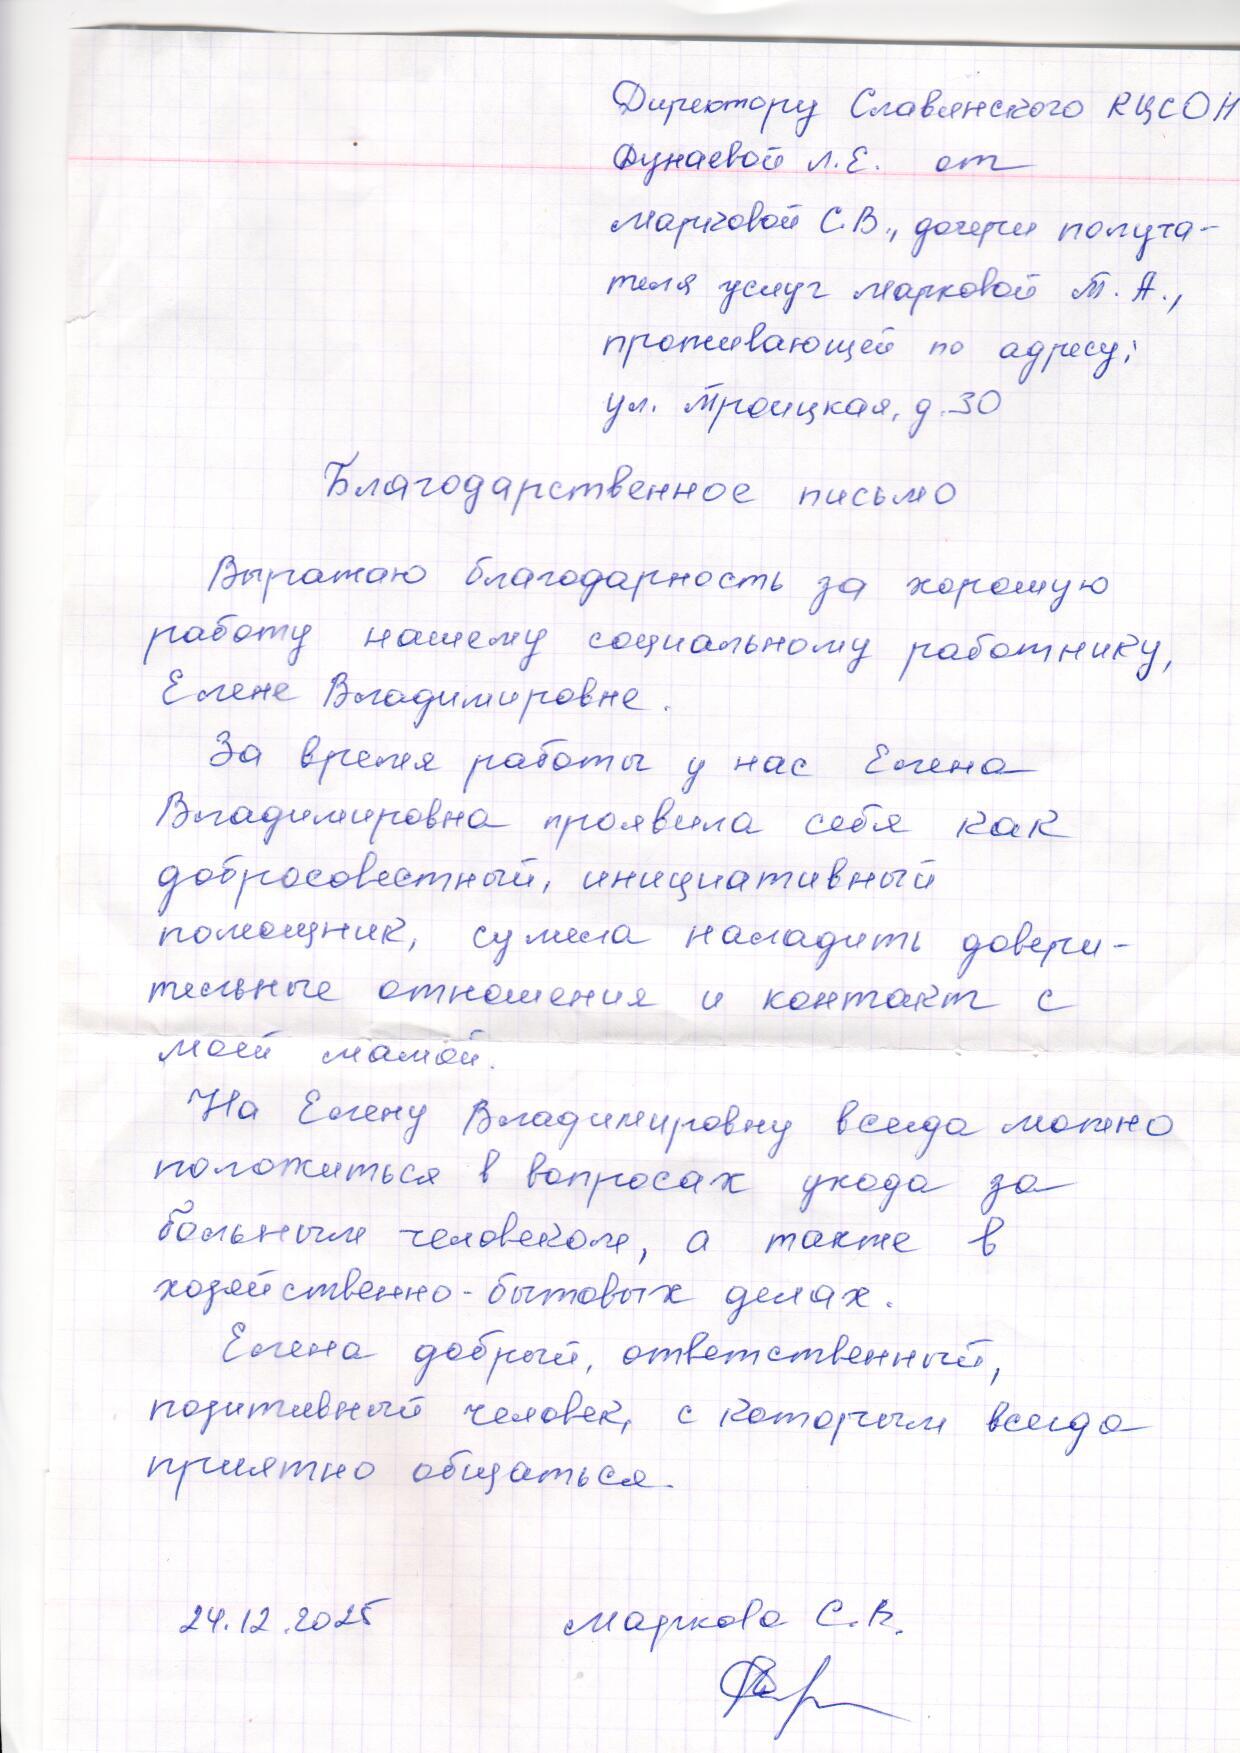 Директору Славянского КЦСОН
Дунаевой Л.Е. от
Марковой С.В., дочери получа-
теля услуг Марковой Т.А.,
проживающей по адресу:
ул. Троицкая, д.30
Благодарственное письмо
Выражаю благодарность за хорошую
работу нашему социальному работнику,
Елене Владимировне.
За время работы у нас Елена
Владимировна проявила себя как
добросовестный, инициативный
помощник, сумела наладить довери-
тельные отношения и контакт с
моей мамой.
На Елену Владимировну всегда можно
положиться в вопросах ухода за
больным человеком, а также в
хозяйственно-бытовых делах.
Елена добрый, ответственный,
позитивный человек, с которым всегда
приятно общаться.
24.12.2025 Маркова С.В.